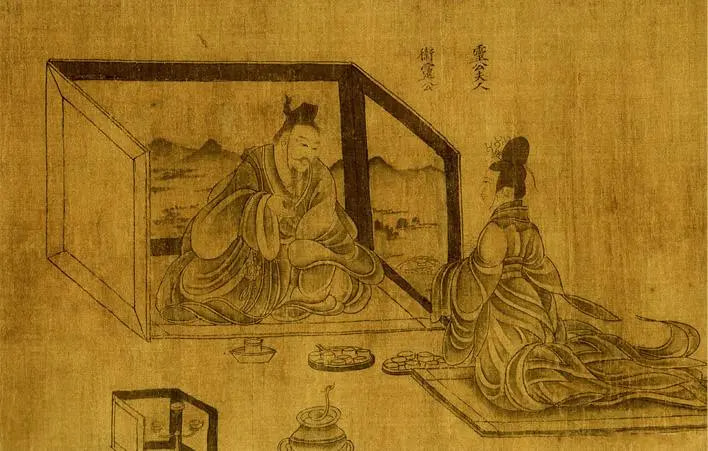 靈公夫人
衛靈公